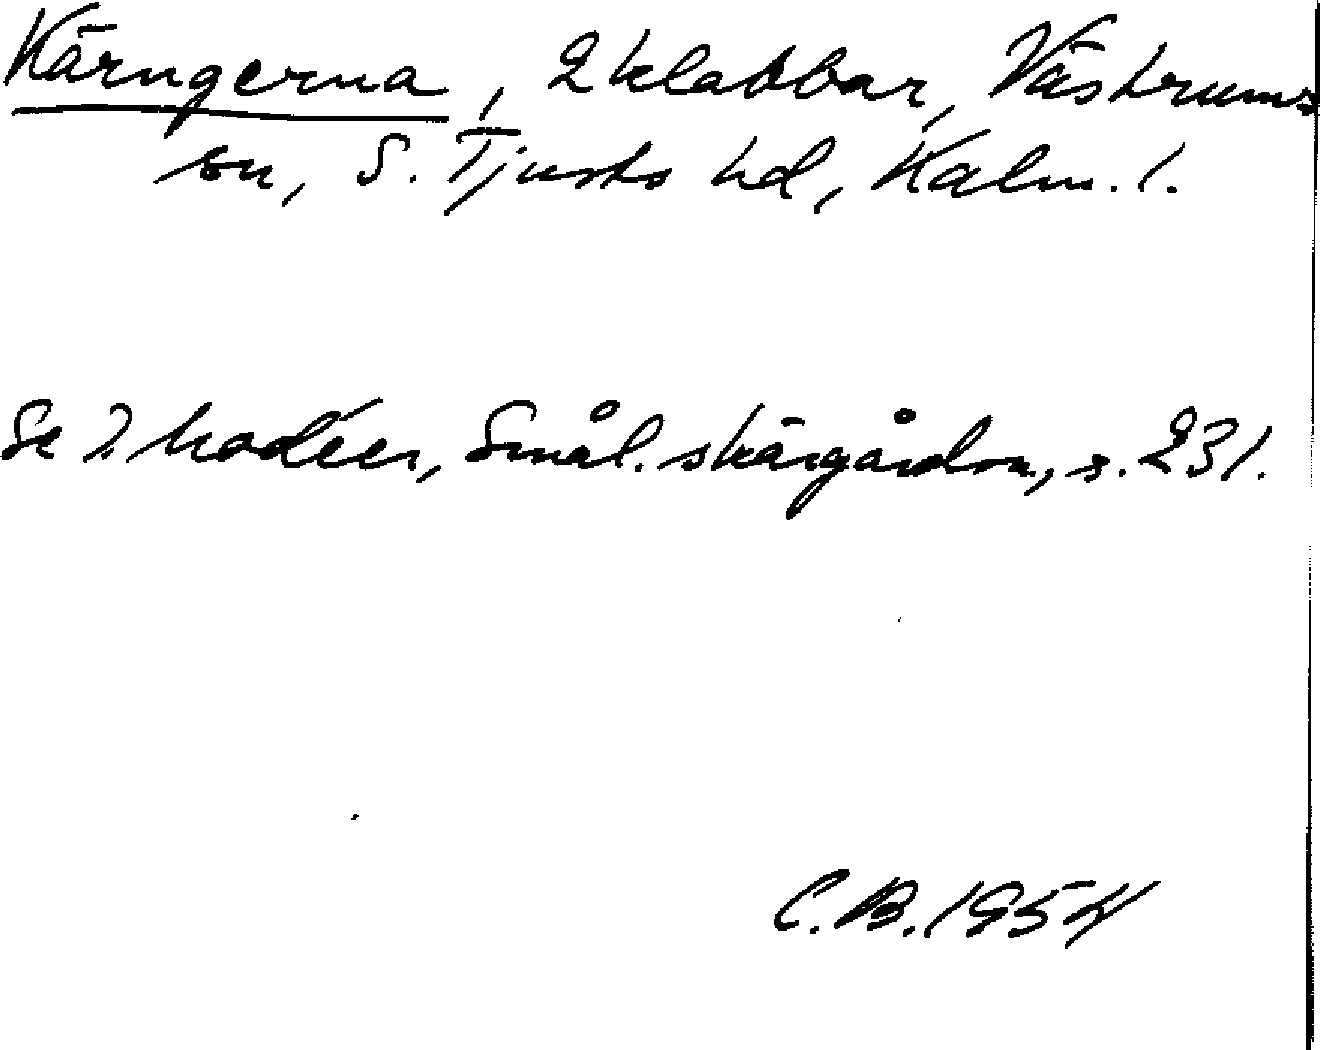 Kärngerna, 2 klabbar, Västrums
sn, S. Tjusts hd, Kalm. l.
Se I. Modéer, Smål. skärgårdsn., s. 231.
C.B. 1954